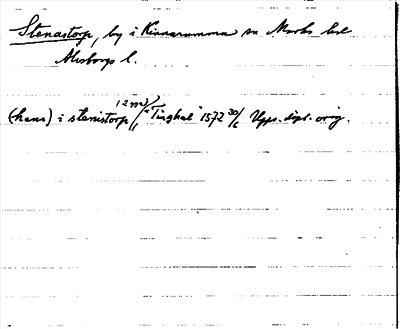 Stenastorp, by i Kinnarumma sn Marks hd
Älvsborgs l.
(hans) i stenistorp // "Tinghal" 1572 30/6 Upps. dipl. orig.